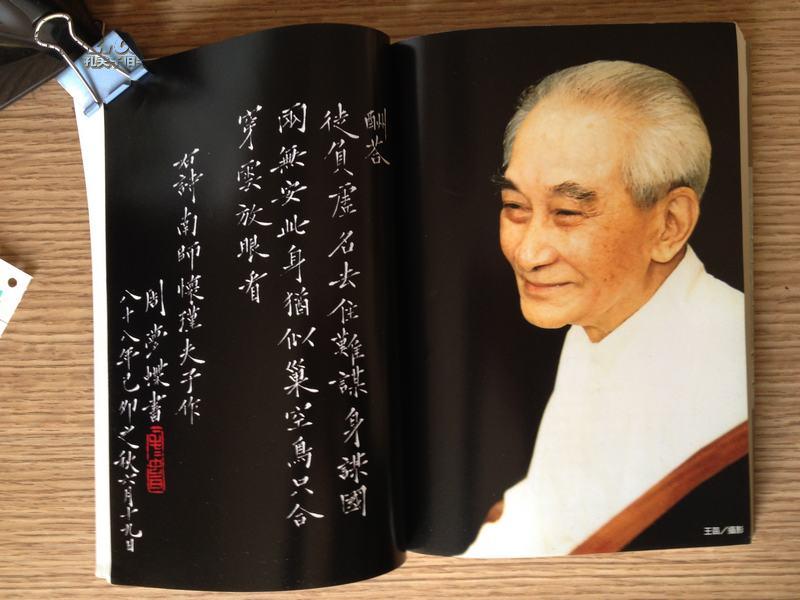 酬荅
徒負虛名去住難謀身謀國
兩無安此身猶似巢空鳥只合
穿雲放眼看
右詩南師懷瑾夫子作
周夢蝶書
八十八年己卯之秋六月十九日
攝影